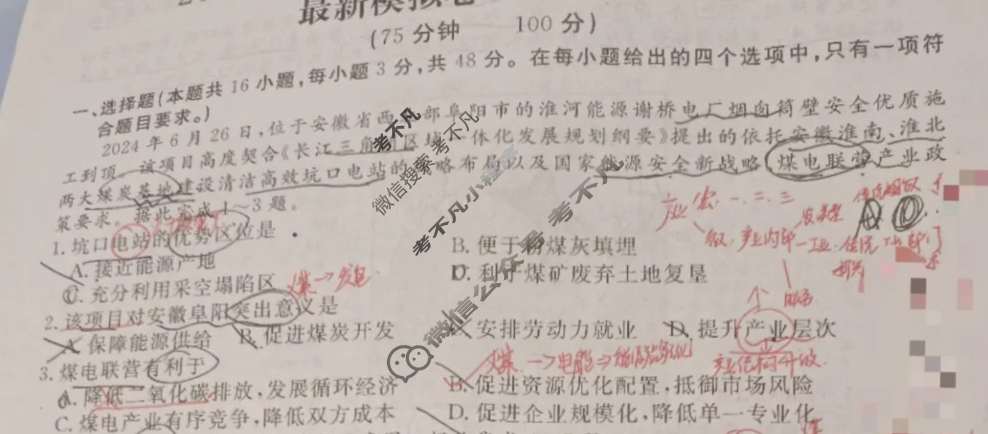 最新模拟卷
(75分钟 100分)
一、选择题(本题共16小题,每小题3分,共48分。在每小题给出的四个选项中,只有一项符
合题目要求。)
2024年6月26日,位于安徽省西 部阜阳市的淮河能源谢桥电厂烟囱筒壁安全优质施
工到顶。该项目高度契合《长江三角 区域一体化发展规划纲要》提出的依托安徽淮南、淮北
两大煤炭基地建设清洁高效坑口电站的 略布局以及国家能源安全新战略 煤电联营产业政
策要求。据此完成1~3题。
1.坑口电站的优势区位是
A.接近能源产地
B.便于粉煤灰填埋
C.充分利用采空塌陷区
D.利于煤矿废弃土地复垦
煤→发电
2.该项目对安徽阜阳突出意义是
A.保障能源供给
B.促进煤炭开发
C.安排劳动力就业
D.提升产业层次
煤→电能→
3.煤电联营有利于
A.降低二氧化碳排放,发展循环经济
B.促进资源优化配置,抵御市场风险
C.煤电产业有序竞争,降低双方成本
D.促进企业规模化,降低单一专业化
考不凡
微信搜索考不凡
考不凡小程序
微信公众号
考不凡